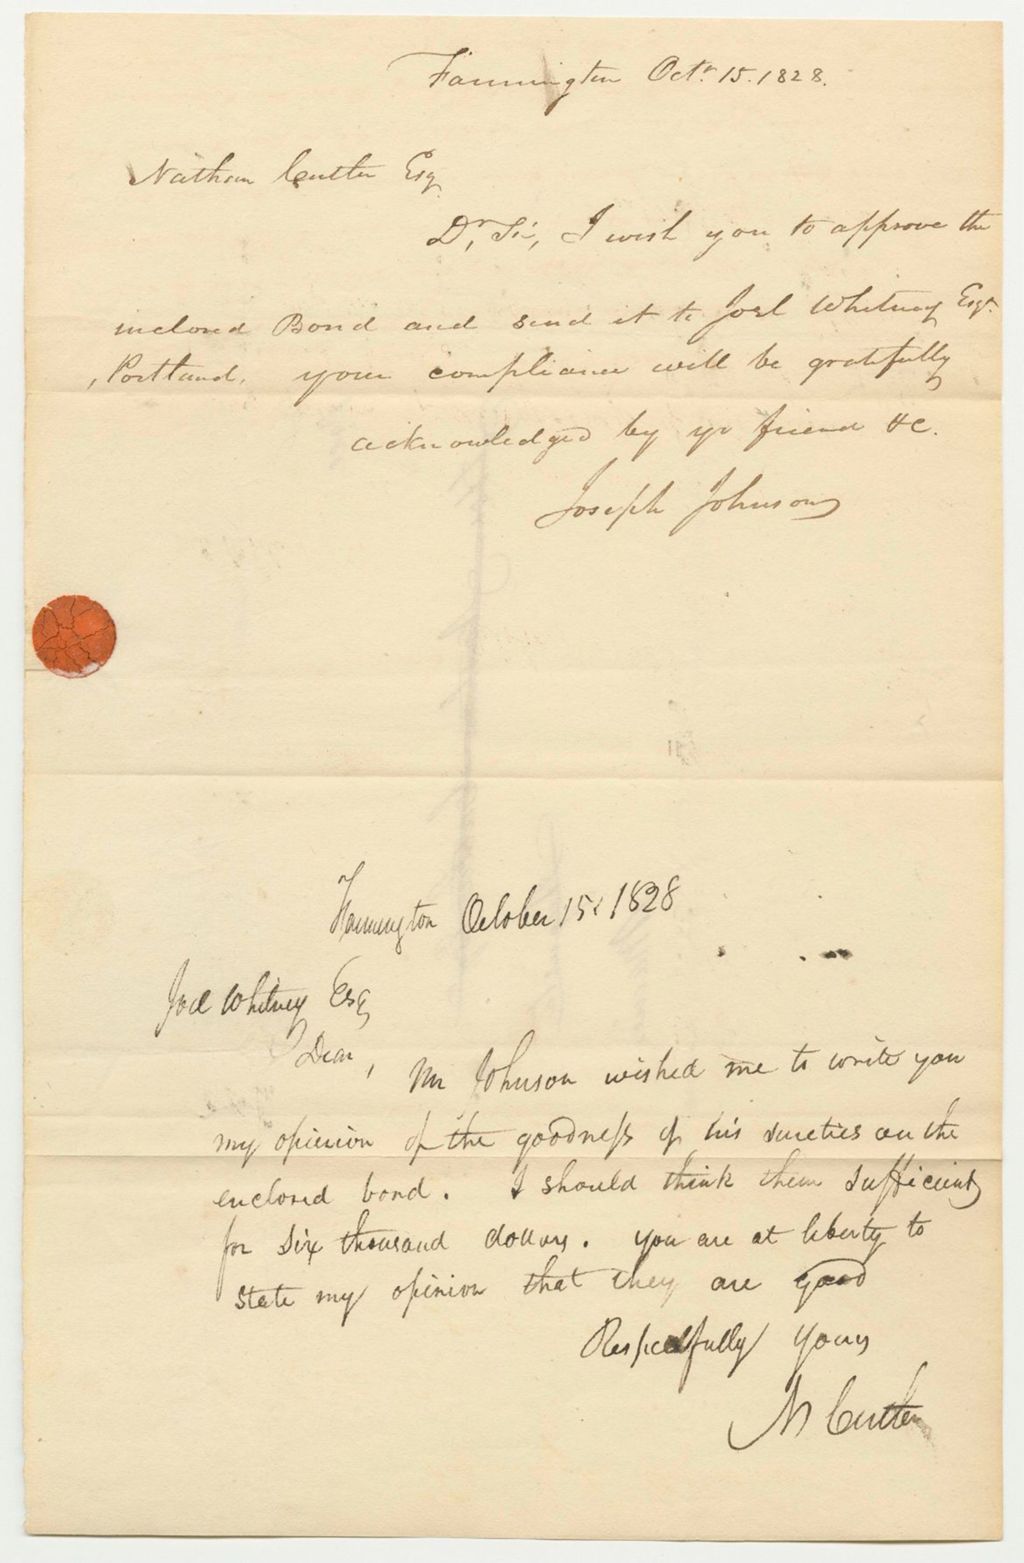 Farmington Octr. 15. 1828.
Nathan Cutler Esq
Dr, Sir, I wish you to approve the
inclosed Bond and send it to Joel Whitney Esqr.
, Portland, your compliance will be gratifully
acknowledged by yr friend &c.
Joseph Johnson
Farmington October 15, 1828
Joel Whitney Esq
Dear, Mr Johnson wished me to write you
my opinion of the goodness of his sureties on the
enclosed bond. I should think them sufficient
for six thousand dollars. you are at liberty to
state my opinion that they are good
Respectfully yours
N Cutler